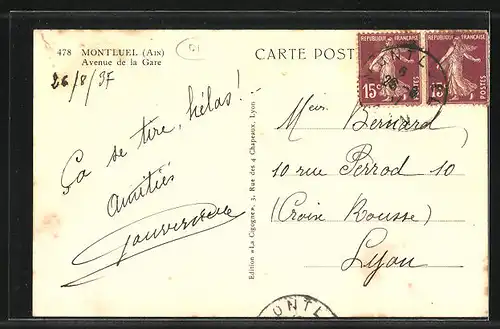 478 MONTLUEL (AIN)
Avenue de la Gare
26/8/37
Ça se tire, hélas!
amitiés
CARTE POST
Edition «La Cigogne», 3, Rue des 4 Chapeaux, Lyon
REPUBLIQUE FRANÇAISE
15c POSTES
REPUBLIQUE FRANÇAISE
15c POSTES
Bernard
10 rue Perrod 10
(Croix Rousse)
Lyon
ONTL